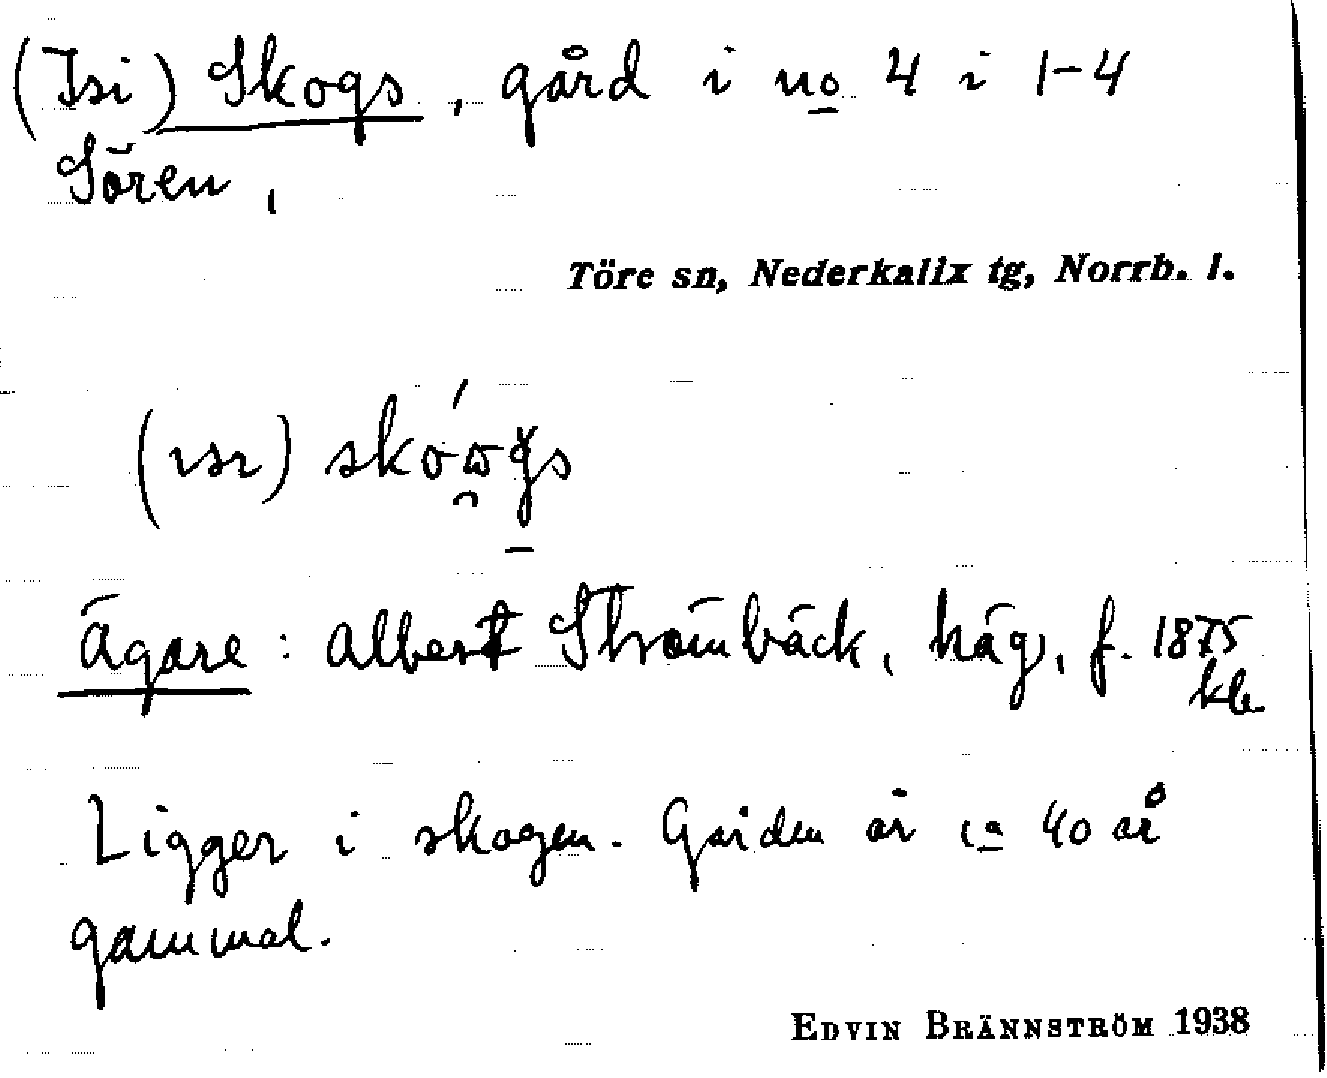 (Isi) Skogs, gård i no 4 i 1-4
Sören,
Töre sn, Nederkalix tg, Norrb. l.
(ısı)
Ägare: Albert Strömbäck, häg, f. 1875
Ligger i skogen. Gården är ca 40 år
gammal.
EDVIN BRÄNNSTRÖM 1938